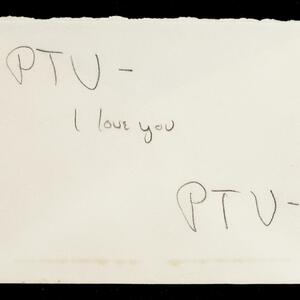 PTV -
I love you
PTV -